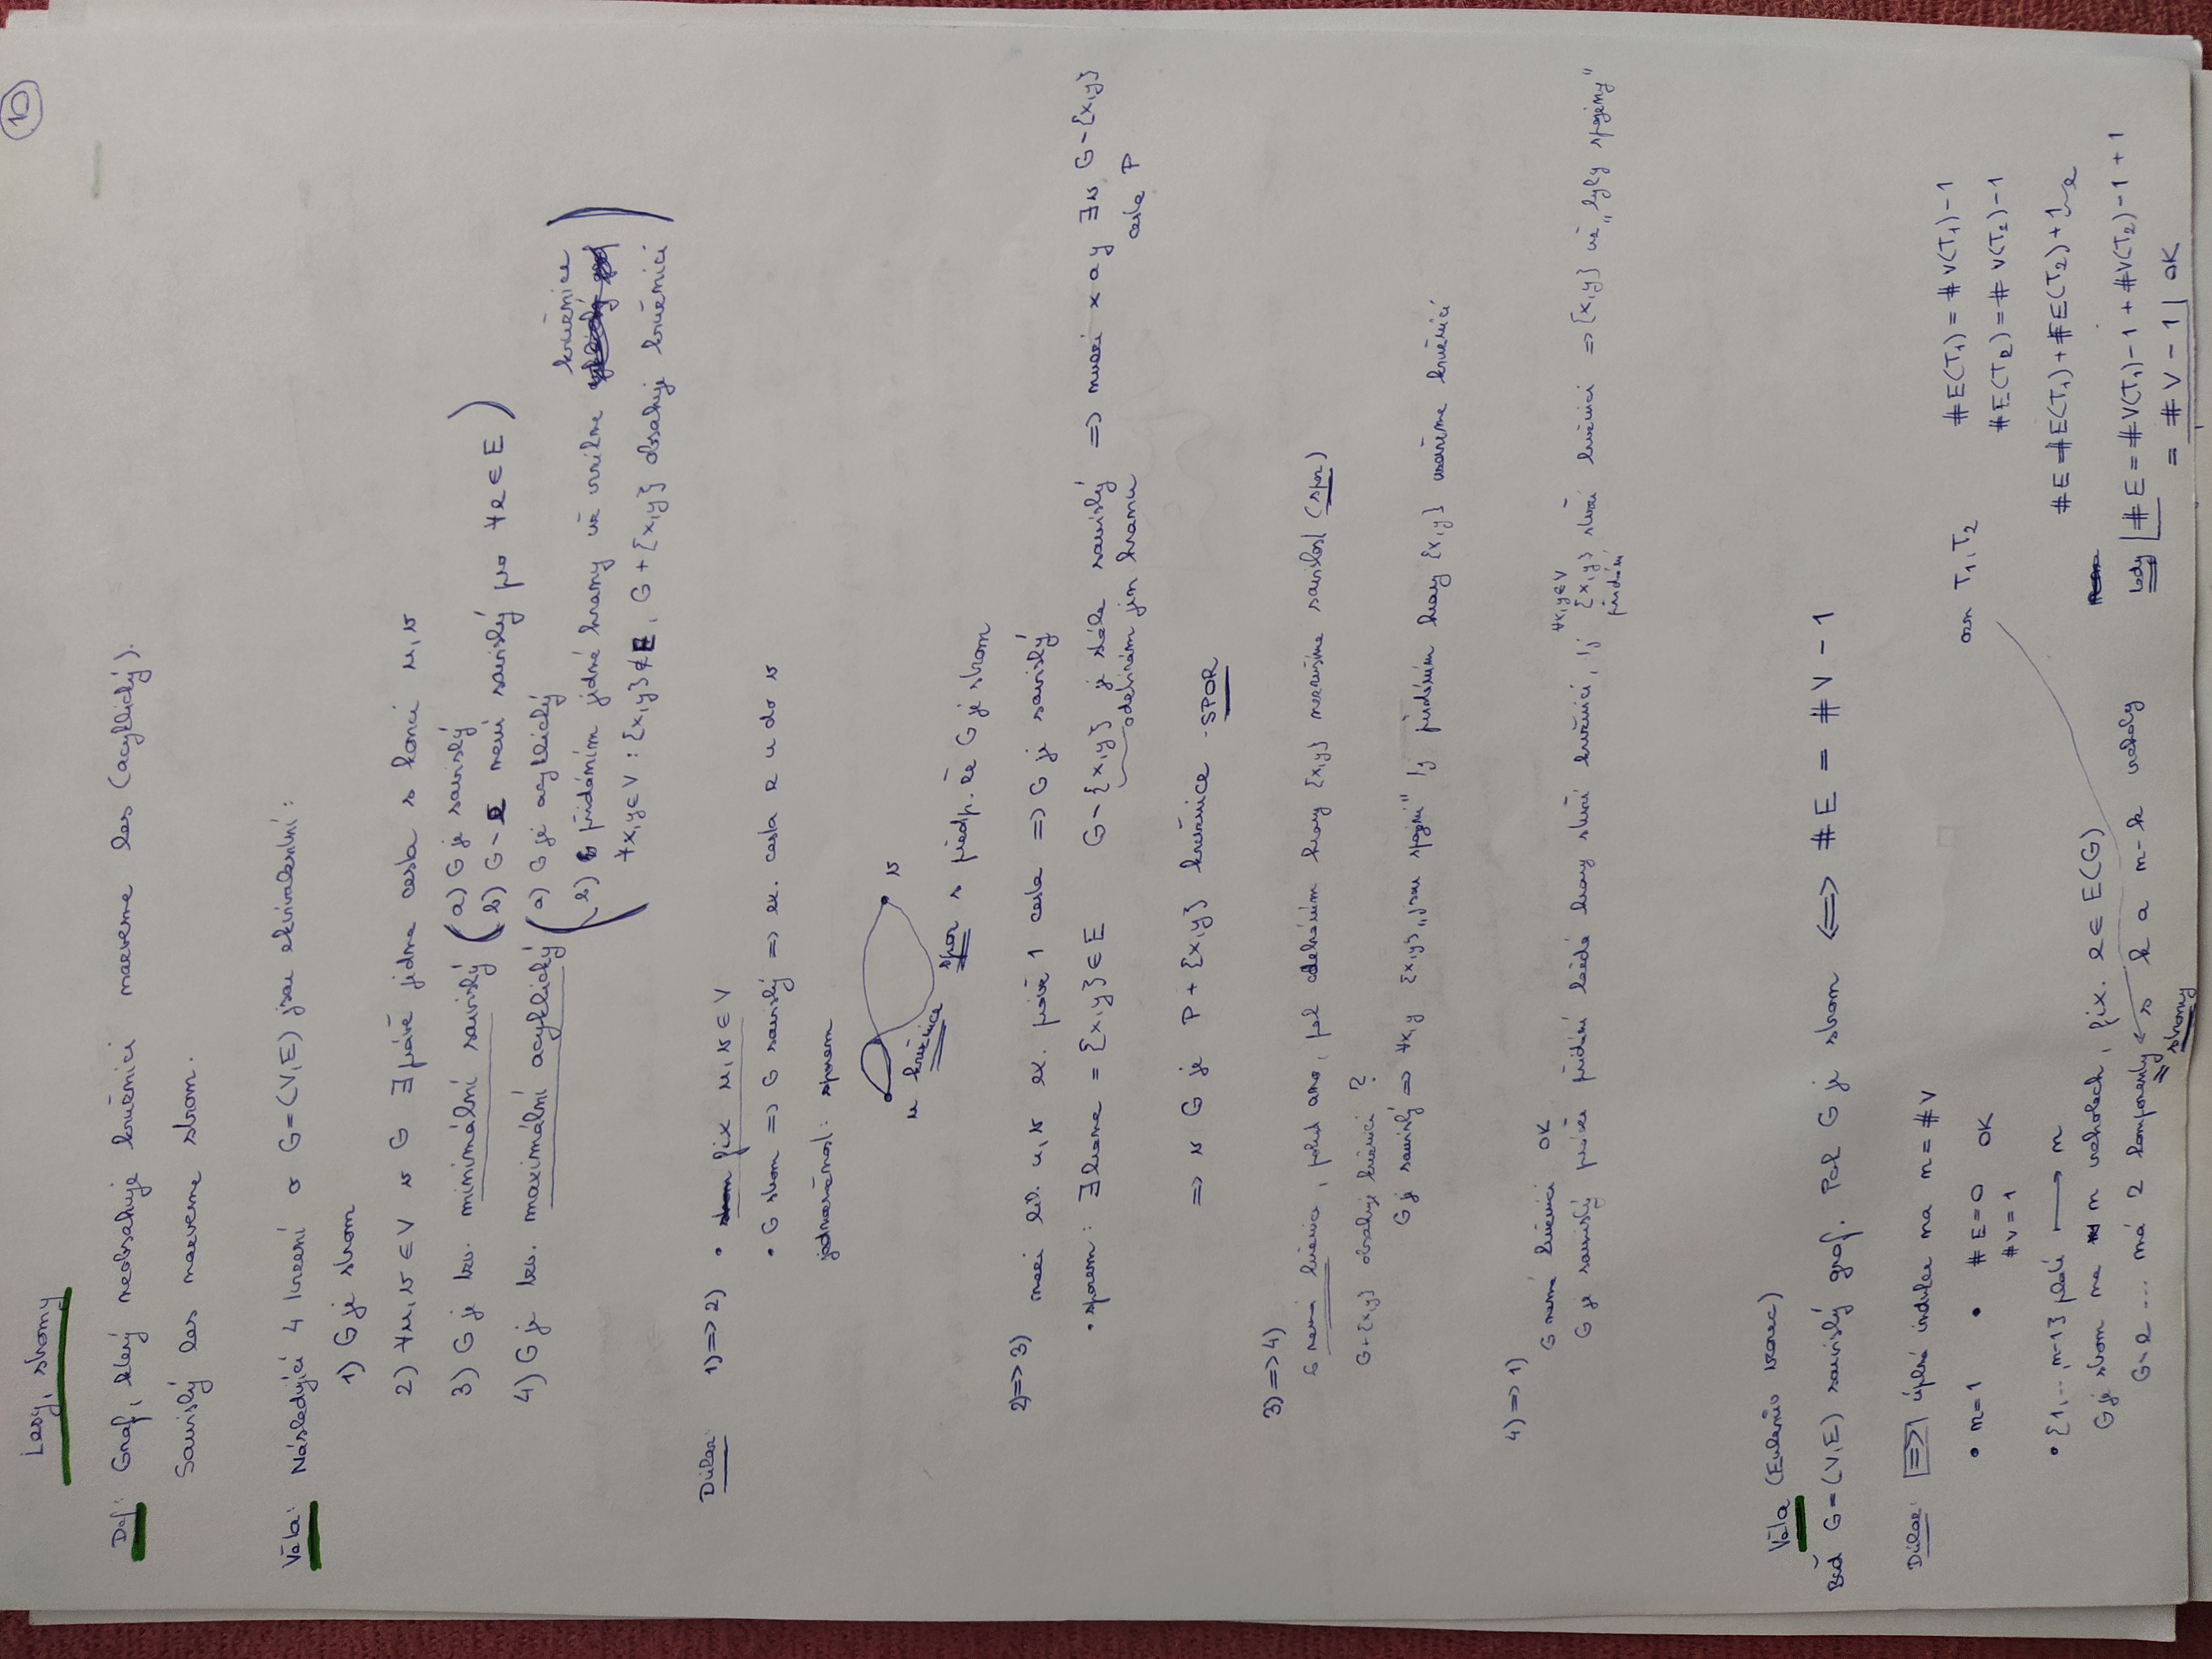 10
Lesy, stromy
Def: Graf, který neobsahuje kružnici nazveme les (acyklický).
Souvislý les nazveme strom.
Věta: Následující 4 tvrzení o G=(V,E) jsou ekvivalentní:
1) G je strom
2) ∀u,v ∈ V v G ∃ právě jedna cesta s konci u,v
3) G je tzv. minimální souvislý ( a) G je souvislý
b) G - e není souvislý pro ∀e ∈ E )
4) G je tzv. maximální acyklický ( a) G je acyklický
b) přidáním jedné hrany už vznikne kružnice )
( ∀x,y ∈ V : {x,y} ∉ E, G + {x,y} obsahuje kružnici
Důkaz: 1) => 2) • fix u,v ∈ V
• G strom => G souvislý => ex. cesta z u do v
jednoznačnost: sporem
u v
kružnice spor s předp. že G je strom
2) => 3) mezi lib. u,v ex. právě 1 cesta => G je souvislý
• sporem: ∃ hrana = {x,y} ∈ E G - {x,y} je stále souvislý => mezi x a y ∃ v G - {x,y}
odebráním jen hranu cesta P
=> v G je P + {x,y} kružnice - SPOR
3) => 4)
G není kružnice, pokud ano, pak odebráním hrany {x,y} nezrušíme souvislost (spor)
G + {x,y} obsahuje kružnici ?
G je souvislý => ∀x,y {x,y} "jsou spojeni" tj přidáním hrany {x,y} uzavřeme kružnici
4) => 1)
G nemá kružnici OK ∀x,y∈V
G je souvislý protože přidání každé hrany utvoří kružnici, tj {x,y} utvoří kružnici => {x,y} už "byly spojeny"
přidání
Věta (Eulerův vzorec)
Buď G=(V,E) souvislý graf. Pak G je strom <=> #E = #V - 1
Důkaz: => úplná indukce na n = #V
• n=1 • #E=0 OK
#V=1
• {1,...,n-1} platí ⟼ n
G je strom na n vrcholech, fix. e ∈ E(G)
G - e ... má 2 komponenty s k a n-k vrcholy
= stromy
ozn T1,T2
#E(T1) = #V(T1)-1
#E(T2) = #V(T2)-1
#E = #E(T1) + #E(T2) + 1
e
tedy #E = #V(T1)-1 + #V(T2)-1+1
= #V - 1 OK